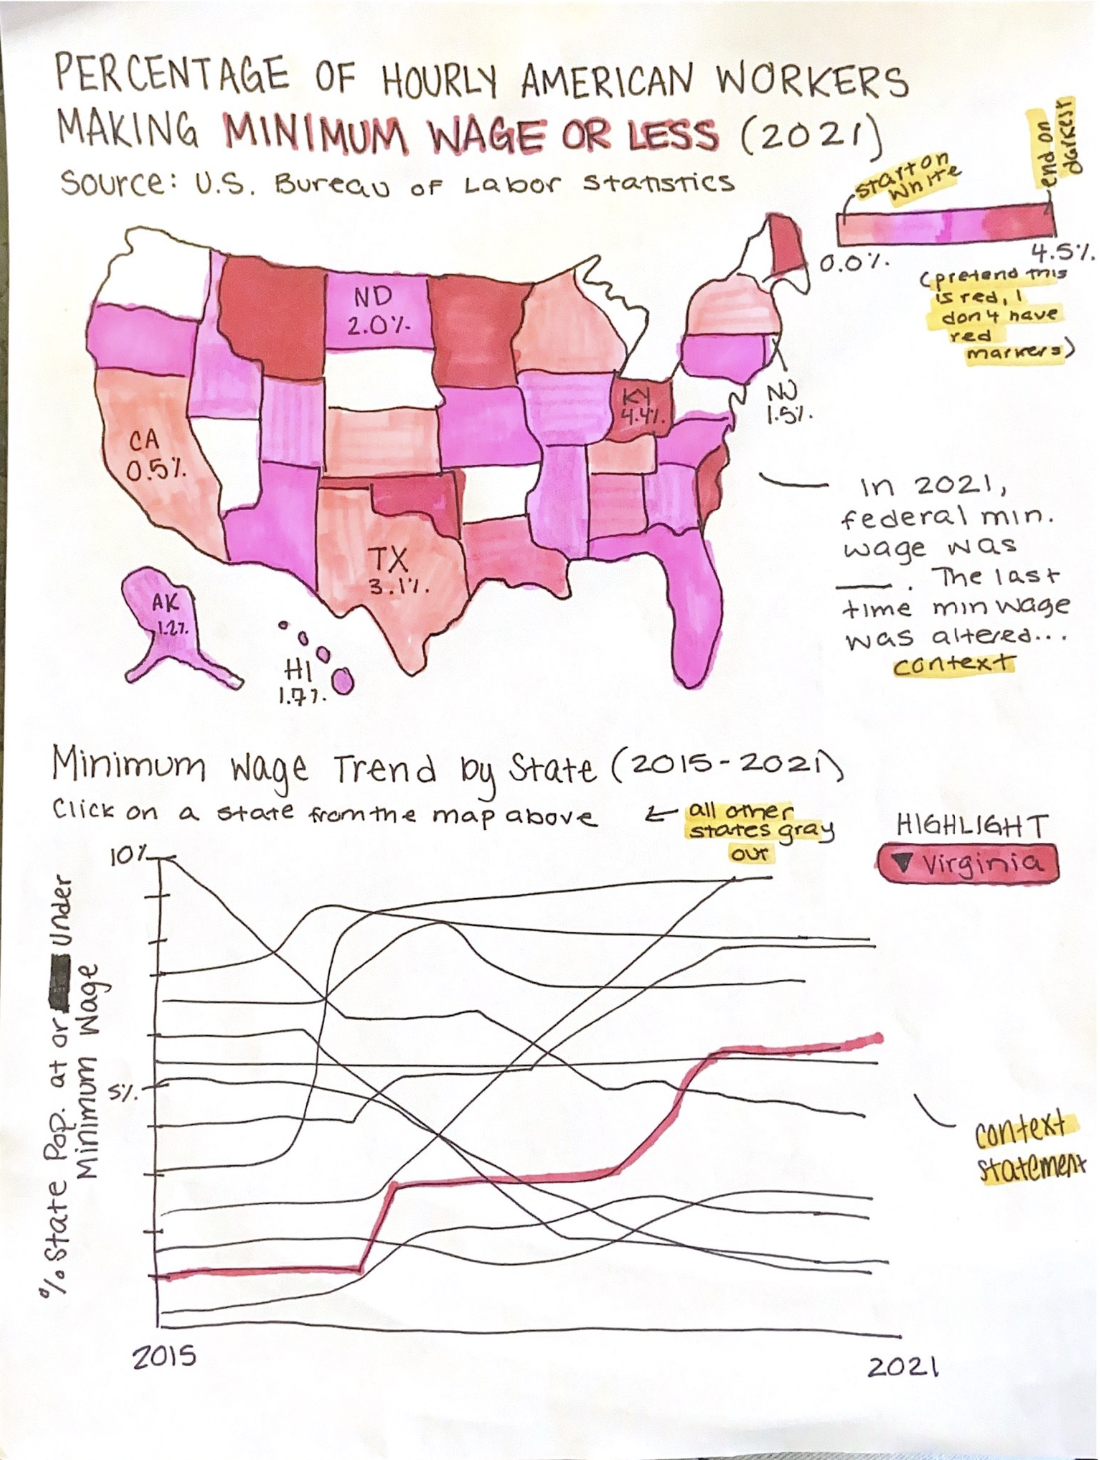 PERCENTAGE OF HOURLY AMERICAN WORKERS
MAKING MINIMUM WAGE OR LESS (2021)
Source: U.S. Bureau of Labor Statistics
start on
white
end on
darkest
0.0%
4.5%
(pretend this
is red, I
don't have
red
markers)
ND
2.0%
KY
4.4%
NJ
1.5%
CA
0.5%
TX
3.1%
AK
1.2%
HI
1.7%
In 2021,
federal min.
wage was
___. The last
time min wage
was altered...
context
Minimum Wage Trend by State (2015-2021)
Click on a state from the map above
← all other
states gray
out
HIGHLIGHT
▼ Virginia
10%
5%
% State Pop. at or Under
Minimum Wage
context
statement
2015
2021